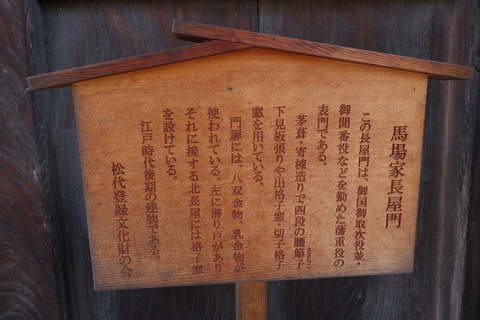 馬場家長屋門
この長屋門は、御国御取次役並・
御聞番役などを勤めた藩重役の
表門である。
茅葺・寄棟造りで四段の腰簓子
ささらこ
下見板張りや出格子窓、切子格子
窓を用いている。
門扉には、八双金物、乳金物が
使われている。左に潜り戸があり
それに接する北長屋には格子窓
を設けている。
江戸時代後期の建物である。
松代登録文化財の会